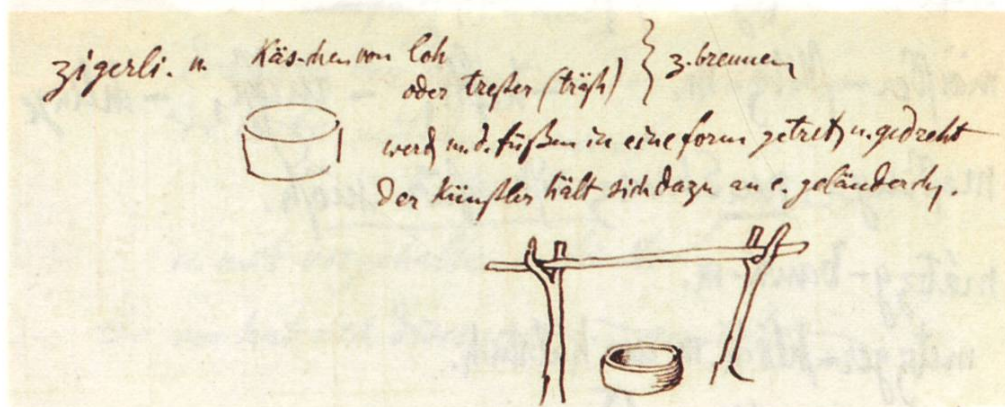 zigerli. n. Käs-chen von loh
oder trester (träsch) } z. brennen
werd m. d. füßen in eine form getret u. gedreht
der künstler hält sich dazu an e. geländerch.